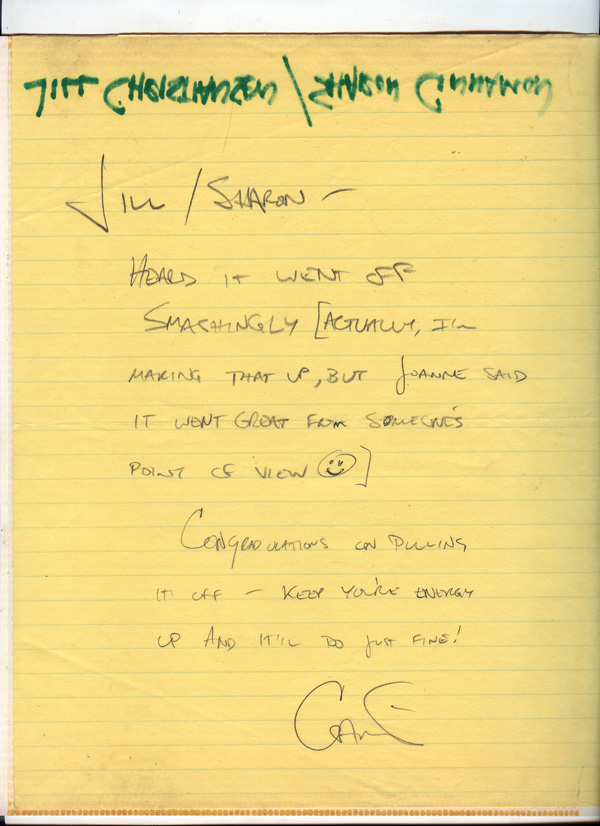 JILL CHRISTIANSEN / SHARON CINNAMON
JILL / SHARON –
HEARD IT WENT OFF
SMASHINGLY [ACTUALLY, I'M
MAKING THAT UP, BUT JOANNE SAID
IT WENT GREAT FROM SOMEONE'S
POINT OF VIEW ☺]
CONGRADULATIONS ON PULLING
IT OFF – KEEP YOU'RE ENERGY
UP AND IT'LL DO JUST FINE!